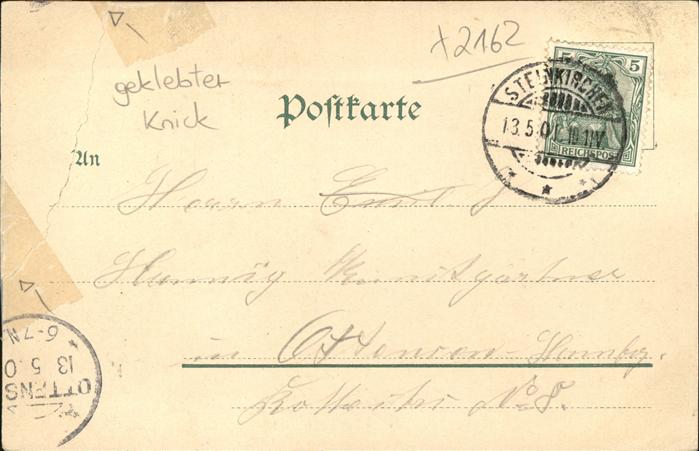 ×2162
geklebter
Knick
Postkarte
5 5
REICHSPOST
STEINKIRCHEN
13.5.01. 10-11V
An
Herrn Emil J
Hennig Kunstgärtner
in Ottensen-Hambg.
No 8.
6-7N
13 5 0
OTTENS